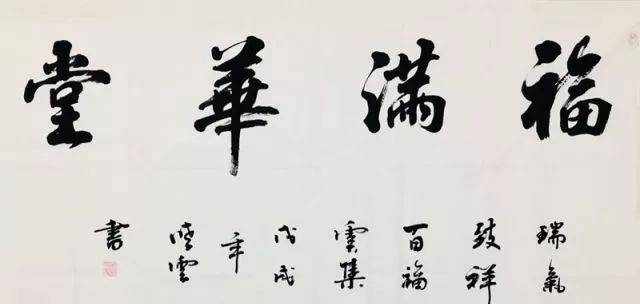 福滿華堂
瑞氣
致祥
百福
雲集
戊戌
年
雲
書